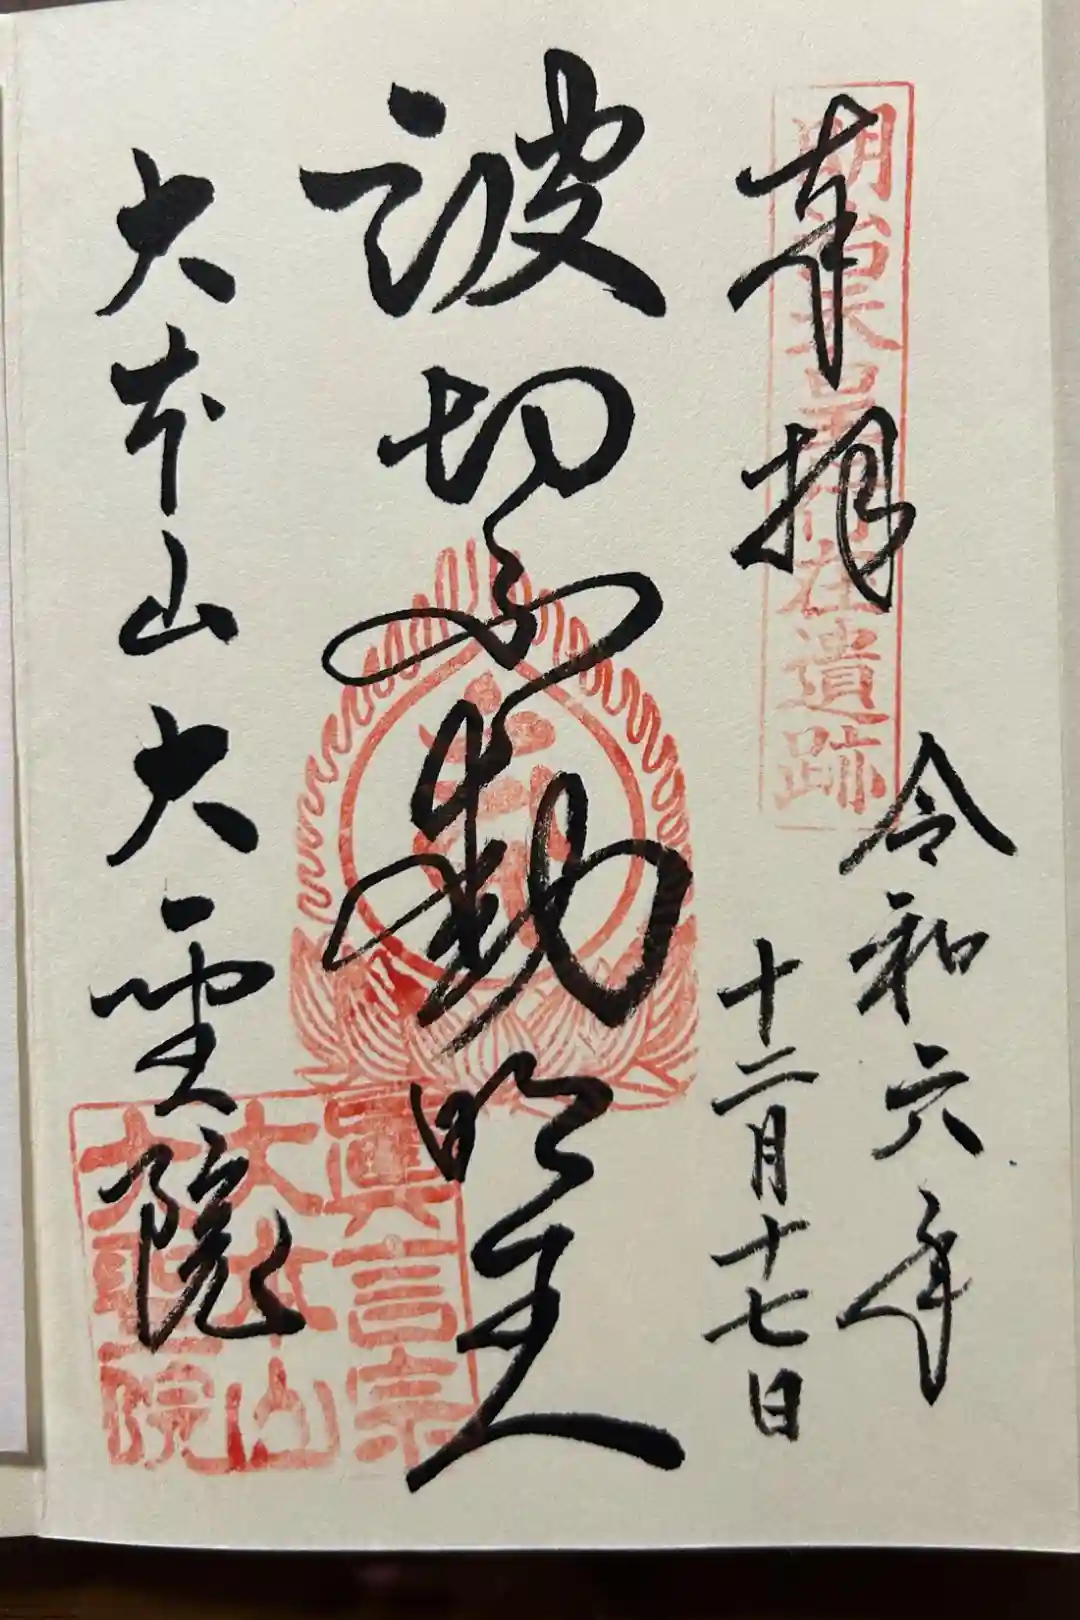 奉拝
明治天皇行在遺跡
令和六年
十二月十七日
波切不動明王
大本山大聖院
眞言宗
大本山
大聖院